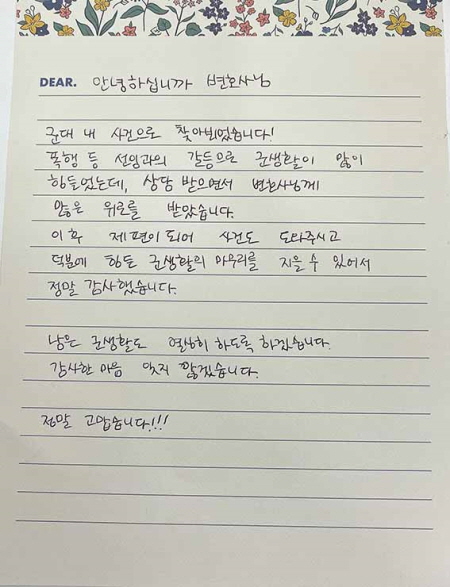 DEAR. 안녕하십니까 변호사님
군대 내 사건으로 찾아뵈었습니다!
폭행 등 선임과의 갈등으로 군생활이 많이
힘들었는데, 상담 받으면서 변호사님께
많은 위로를 받았습니다.
이후 제편이 되어 사건도 도와주시고
덕분에 힘든 군생활의 마무리를 지을 수 있어서
정말 감사했습니다.
남은 군생활도 열심히 하도록 하겠습니다.
감사한 마음 잊지 않겠습니다.
정말 고맙습니다!!!